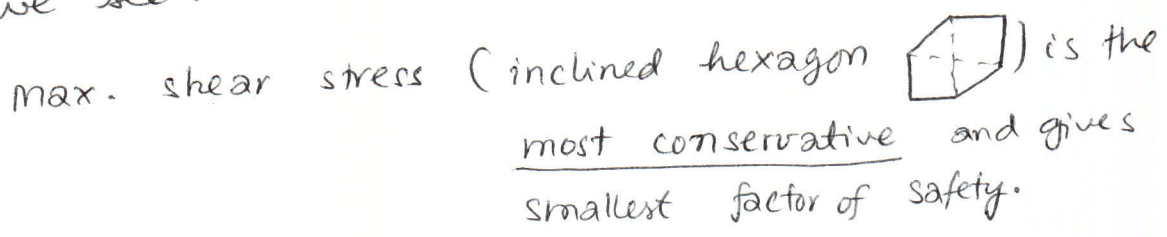 max. shear stress (inclined hexagon ) is the
most conservative and gives
smallest factor of safety.